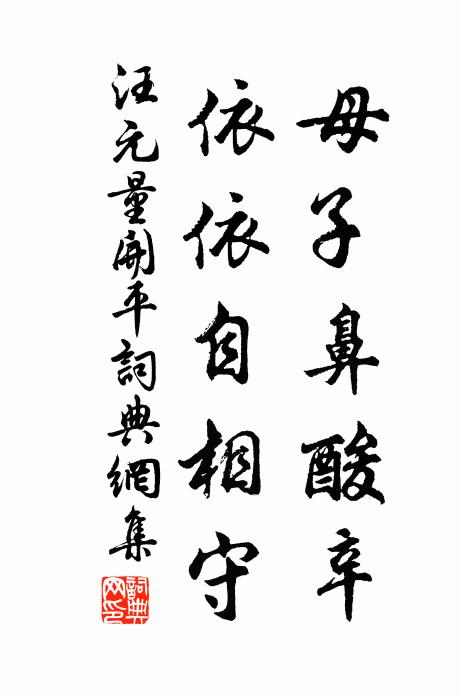 母子鼻酸辛
依依自相守
汪元量開平詞典網集
詞典網印